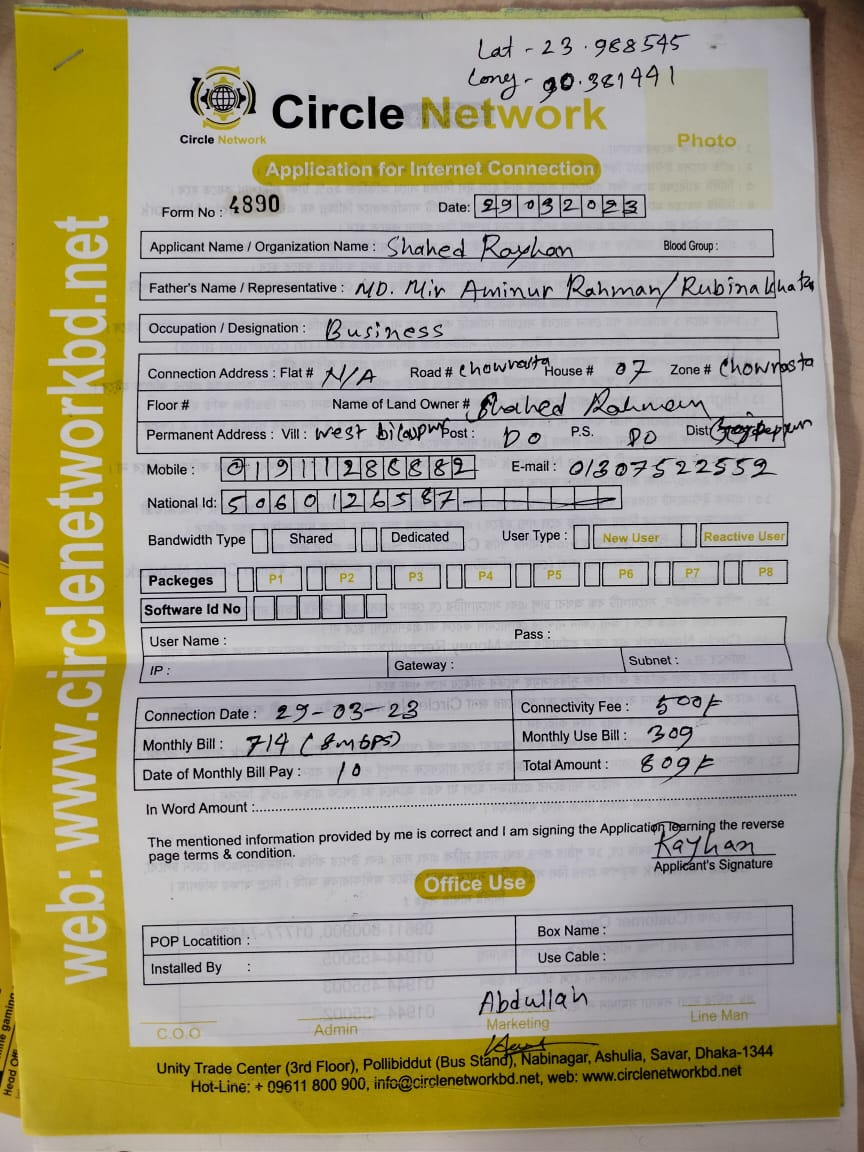 Lat - 23.988545
Long - 90.381441
Circle Network
Circle Network
Photo
Application for Internet Connection
Form No : 4890
Date: 29032023
Applicant Name / Organization Name : Shahed Rayhan Blood Group :
Father's Name / Representative : MD. Mir Aminur Rahman/Rubina khata
Occupation / Designation : Business
Connection Address : Flat # N/A Road # chowrasta House # 07 Zone # Chowrasta
Floor # Name of Land Owner # Shahed Rahman
Permanent Address : Vill : west bilaspur Post : DO P.S. DO Dist
Mobile : 01911286882 E-mail : 01307522552
National Id: 5060126587
Bandwidth Type Shared Dedicated User Type : New User Reactive User
Packeges P1 P2 P3 P4 P5 P6 P7 P8
Software Id No
User Name : Pass :
IP : Gateway : Subnet :
Connection Date : 29-03-23 Connectivity Fee : 500/-
Monthly Bill : 714 (8mbps) Monthly Use Bill : 309
Date of Monthly Bill Pay : 10 Total Amount : 809/-
In Word Amount :
The mentioned information provided by me is correct and I am signing the Application learning the reverse
page terms & condition.
Rayhan
Applicant's Signature
Office Use
POP Locatition : Box Name :
Installed By : Use Cable :
Abdullah
C.O.O Admin Marketing Line Man
Unity Trade Center (3rd Floor), Pollibiddut (Bus Stand), Nabinagar, Ashulia, Savar, Dhaka-1344
Hot-Line: + 09611 800 900, info@circlenetworkbd.net, web: www.circlenetworkbd.net
web: www.circlenetworkbd.net